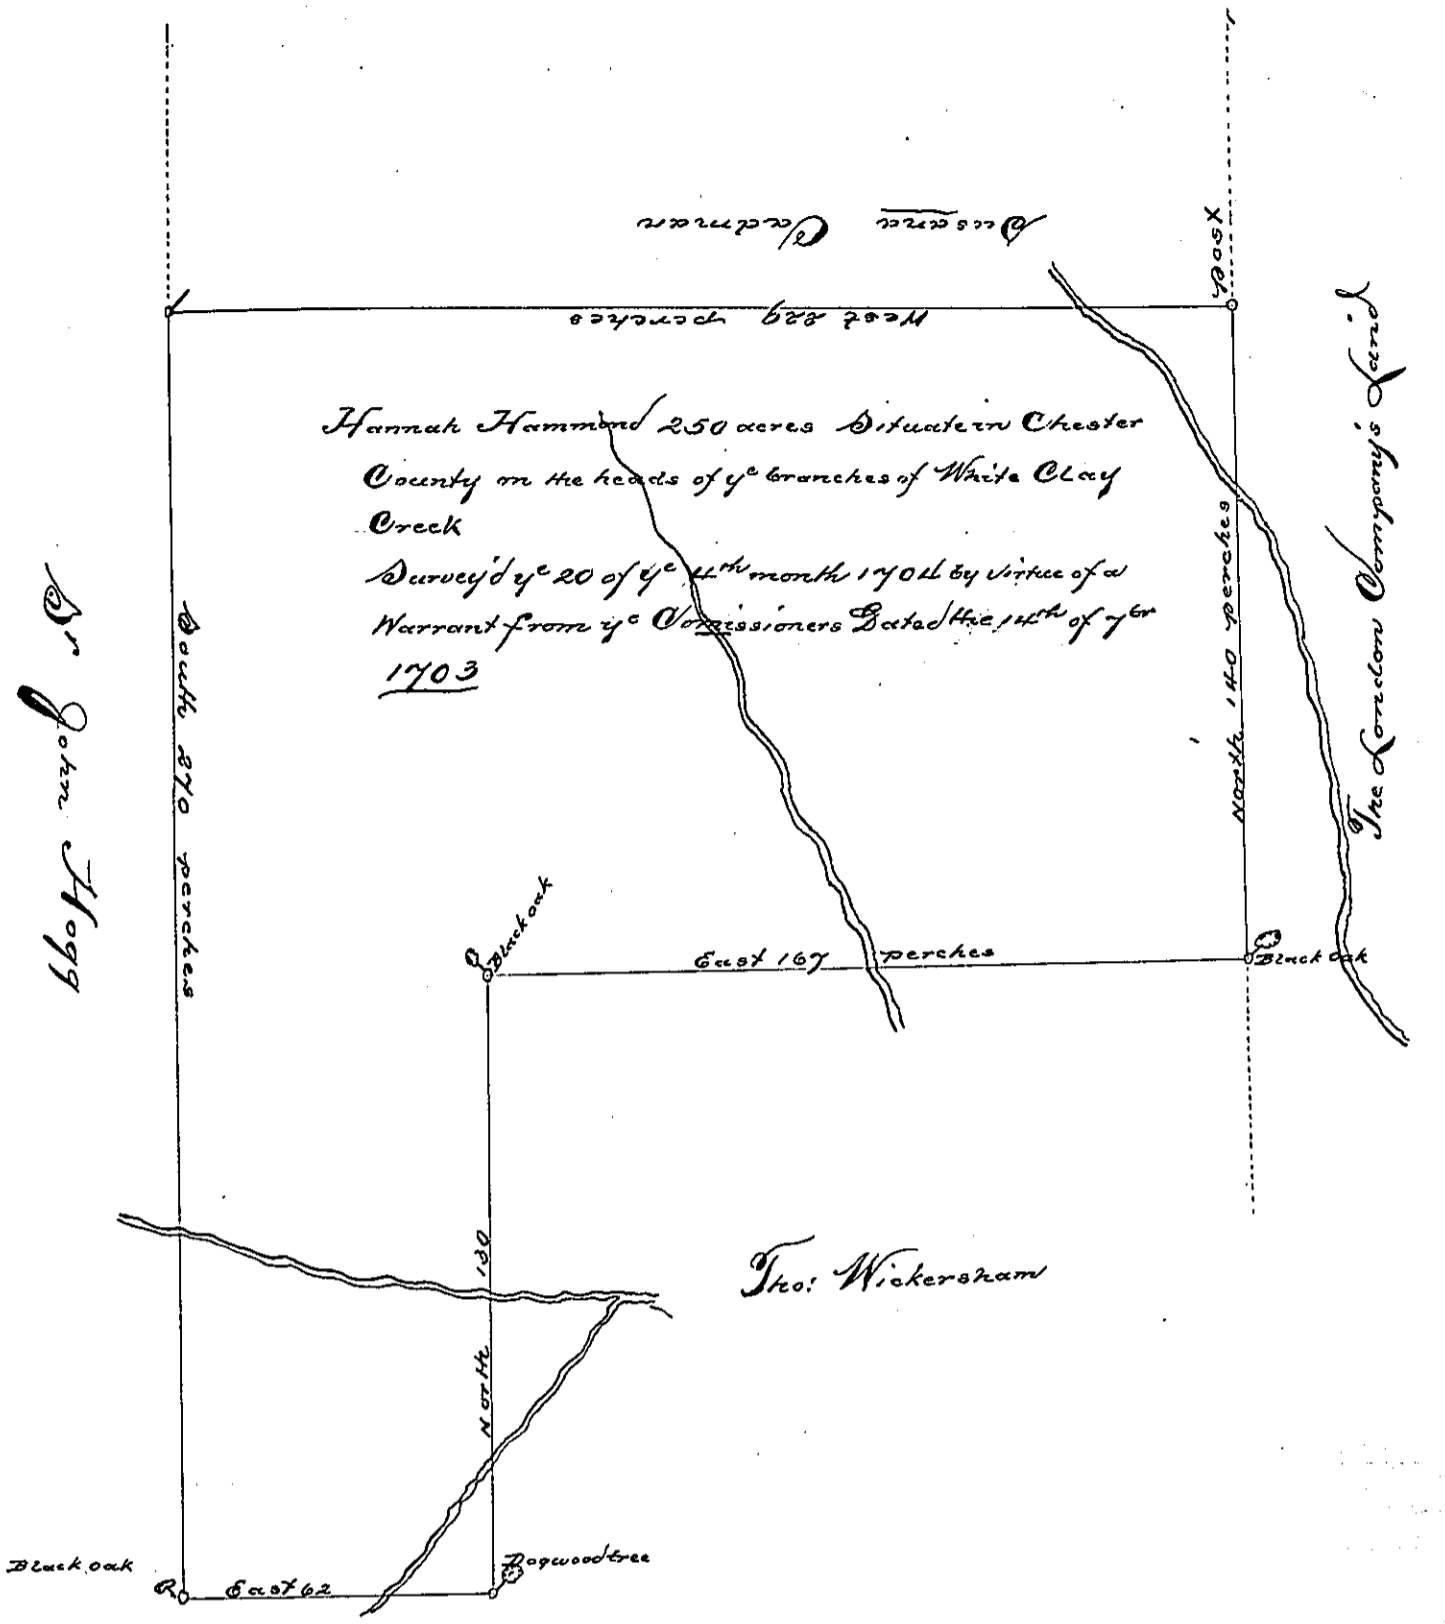 Susana Cadman
post
West 229 perches
The London Company's Land
Hannah Hammond 250 acres Situate in Chester
County on the heads of yᵉ branches of White Clay
Creek
Survey'd yᵉ 20 of yᵉ 4ᵗʰ month 1704 by virtue of a
Warrant from yᵉ Comissioners Dated the 14ᵗʰ of 7ᵇʳ
1703
North 140 perches
South 270 perches
Dʳ John Hogg
Black oak
East 167 perches
Black oak
North 130
Tho: Wickersham
Black oak
East 62
Dogwood tree